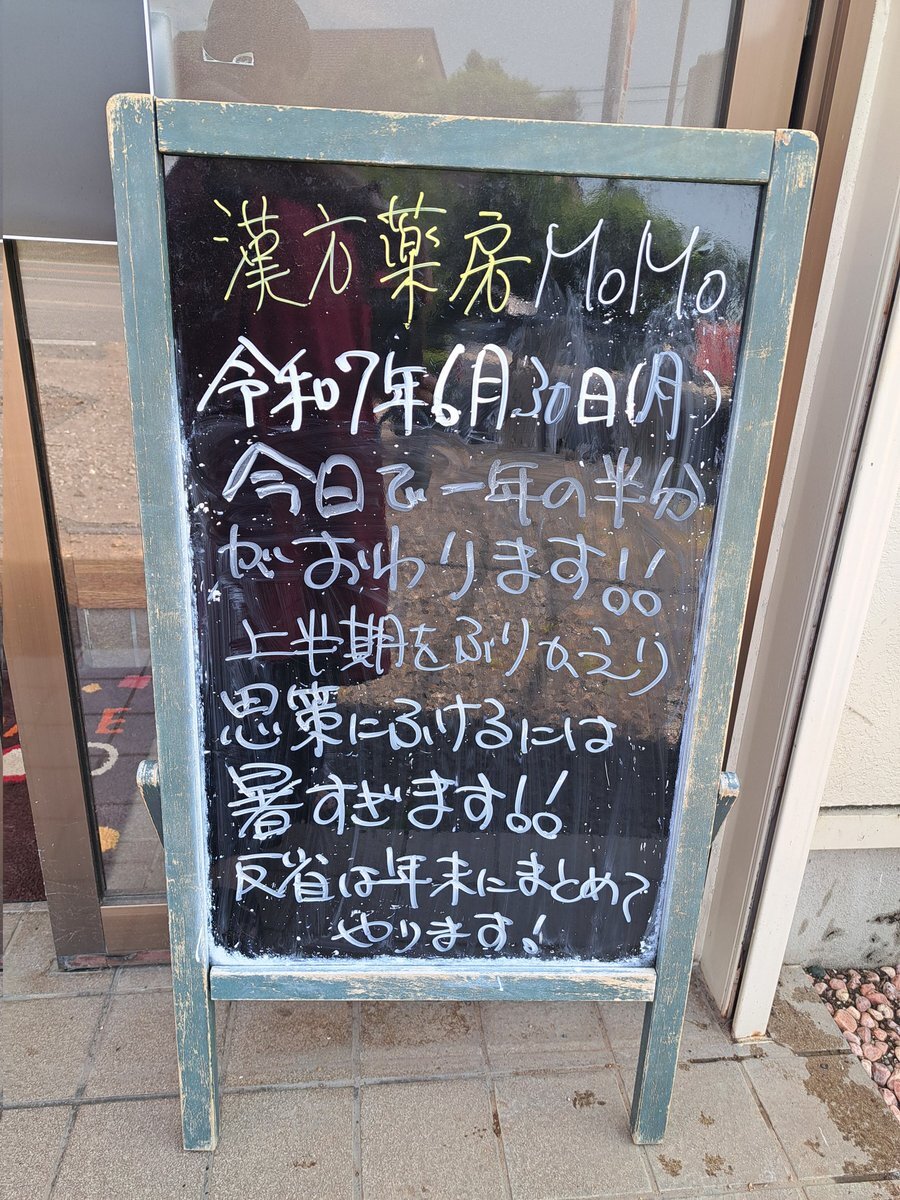 漢方薬房MoMo
令和7年6月30日(月)
今日で一年の半分
がおわります!!
上半期をふりかえり
思策にふけるには
暑すぎます!!
反省は年末にまとめて
やります!